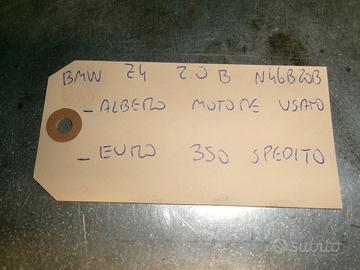 BMW Z4 2.0 B N46B20B
- ALBERO MOTORE USATO
- EURO 350 SPEDITO
subito